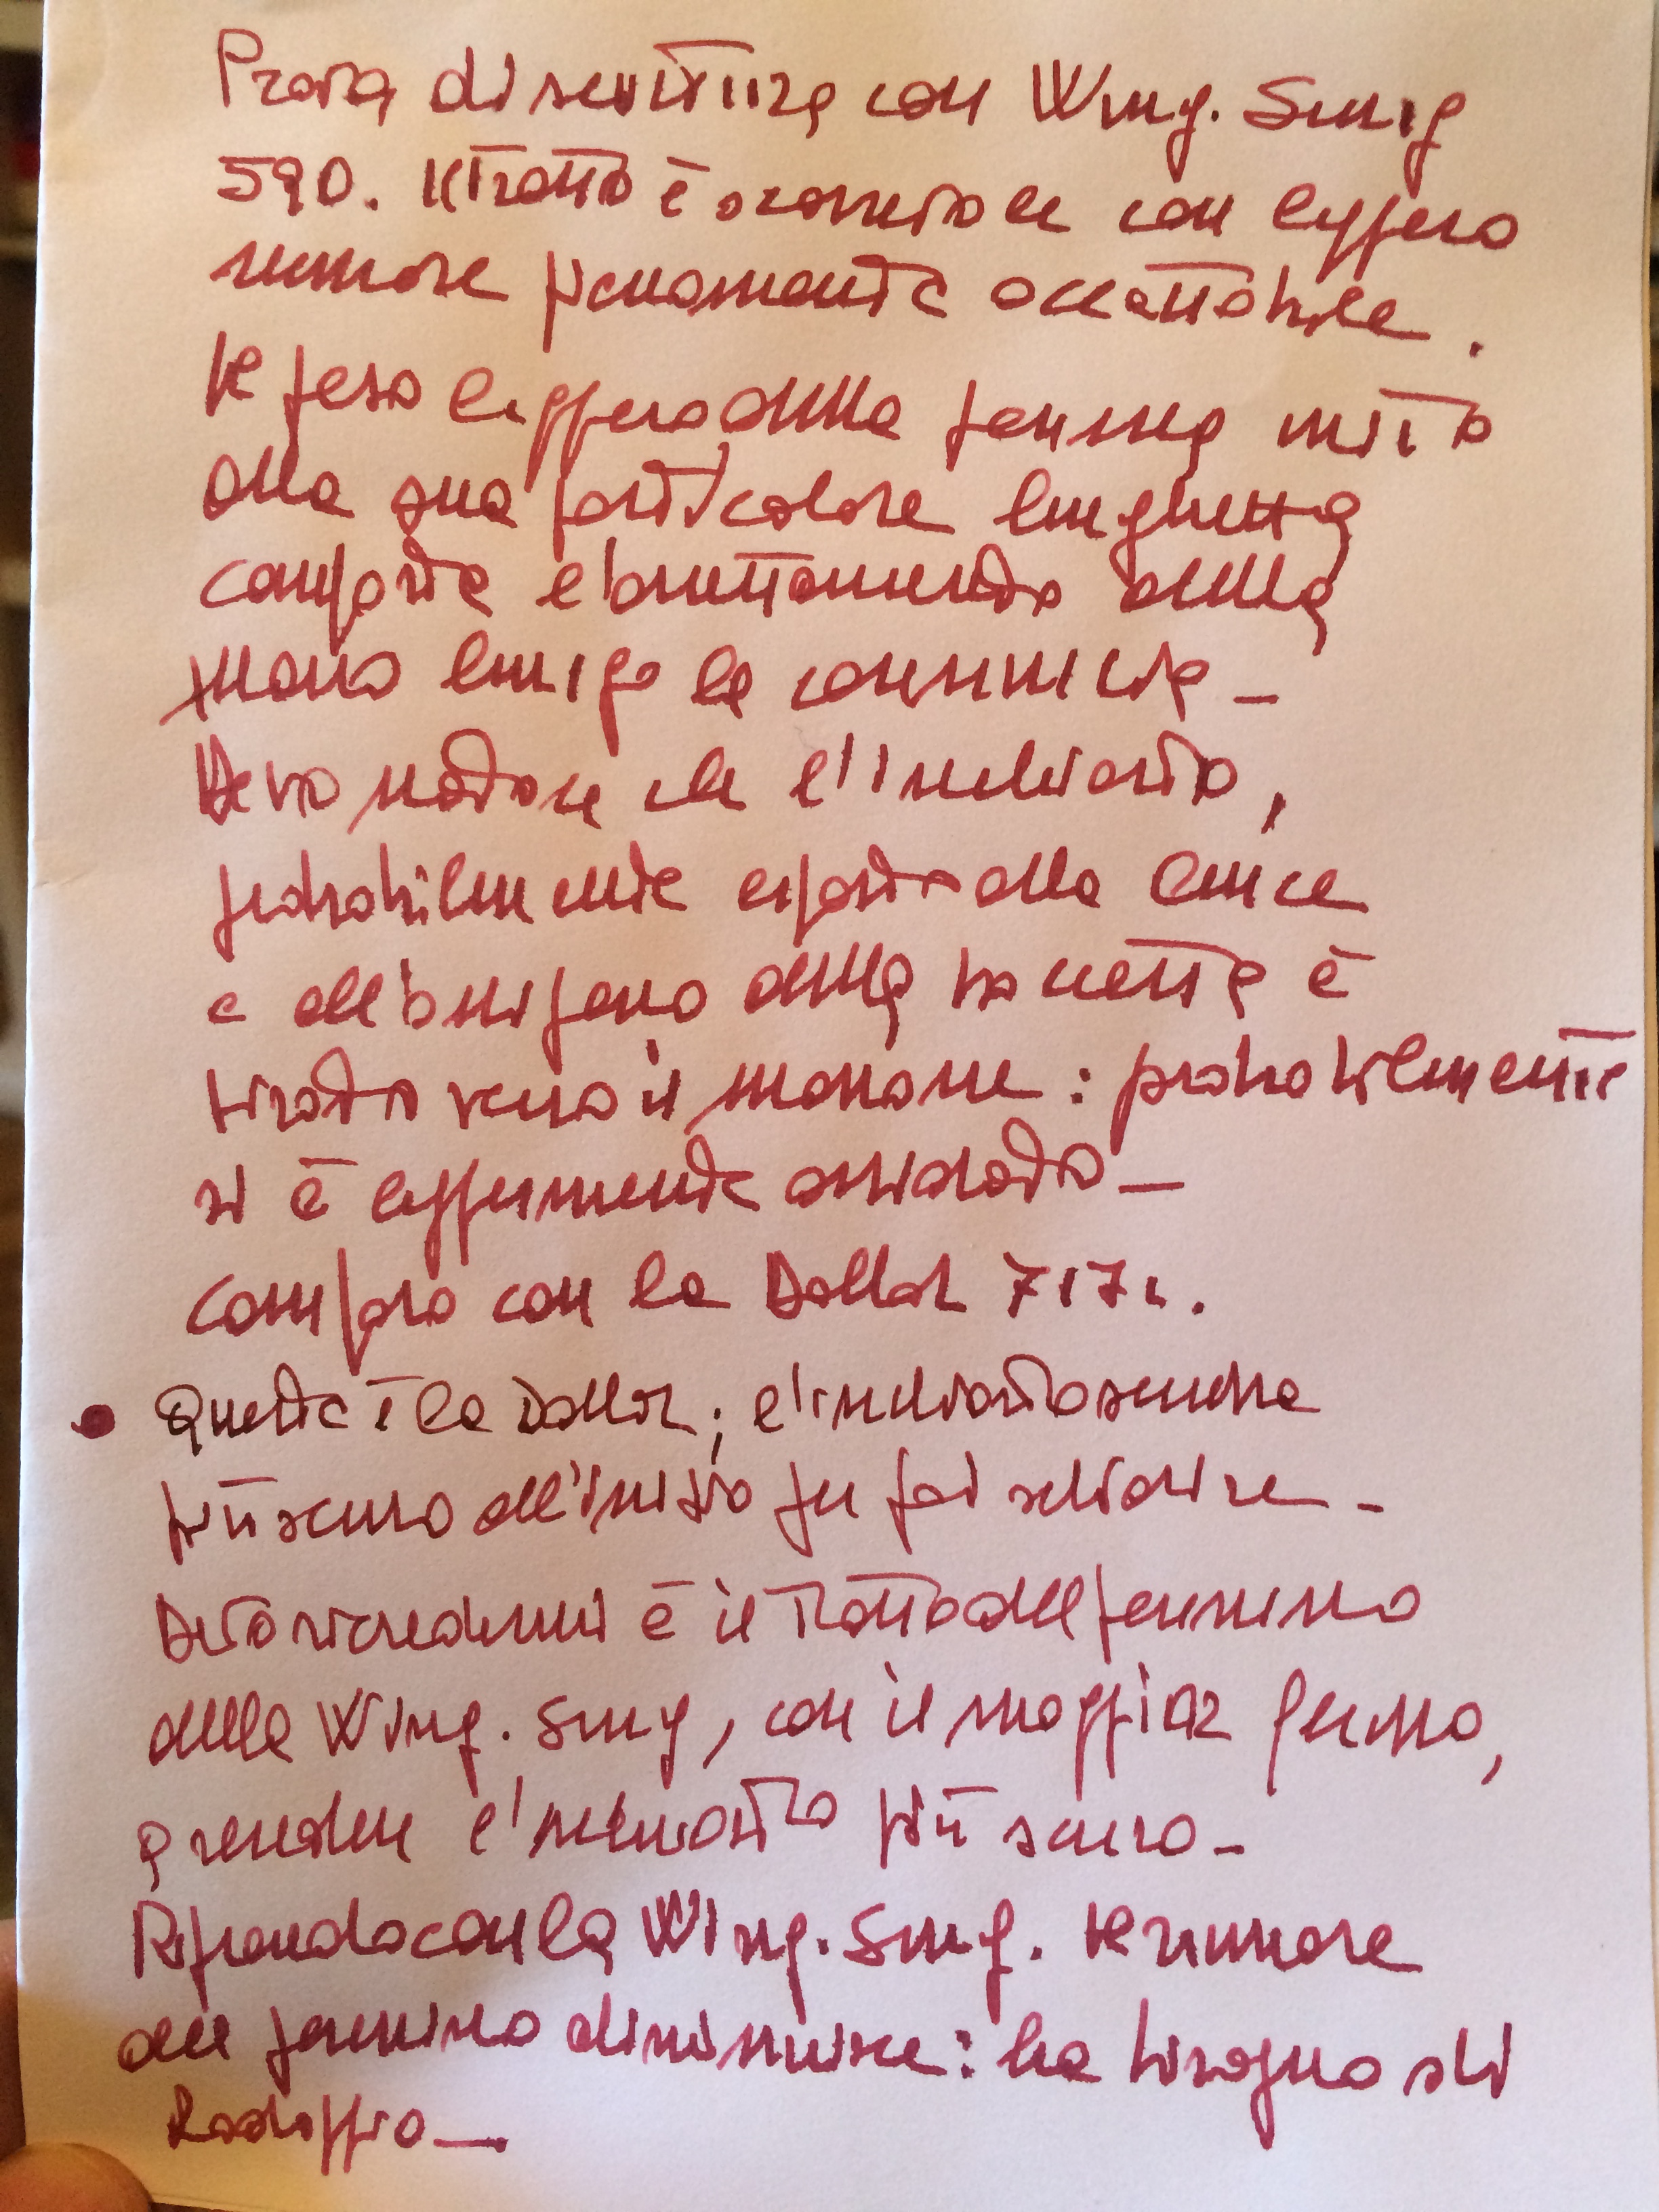 Prova di scrittura con Wing. Sung
590. Il tratto è scorrevole con leggero
rumore pienamente accettabile.
Il peso leggero della penna unito
alla sua particolare lunghezza
comporta lo sbattimento della
mano lungo la
Devo notare che l'inchiostro,
probabilmente esposto alla luce
e all'ossigeno della boccetta è
virato verso il marrone: probabilmente
si è leggermente ossidato_
Comparo con la Dollar 717i.
• Questa è la Dollar; l'inchiostro sembra
più scuro all'inizio per poi schiarire_
Devo ricredermi è il tratto del pennino
della Wing. Sung, con il maggior flusso,
a rendere l'inchiostro più scuro_
Riprendo con la Wing. Sung. Il rumore
del pennino diminuisce: ha bisogno di
Rodaggio_